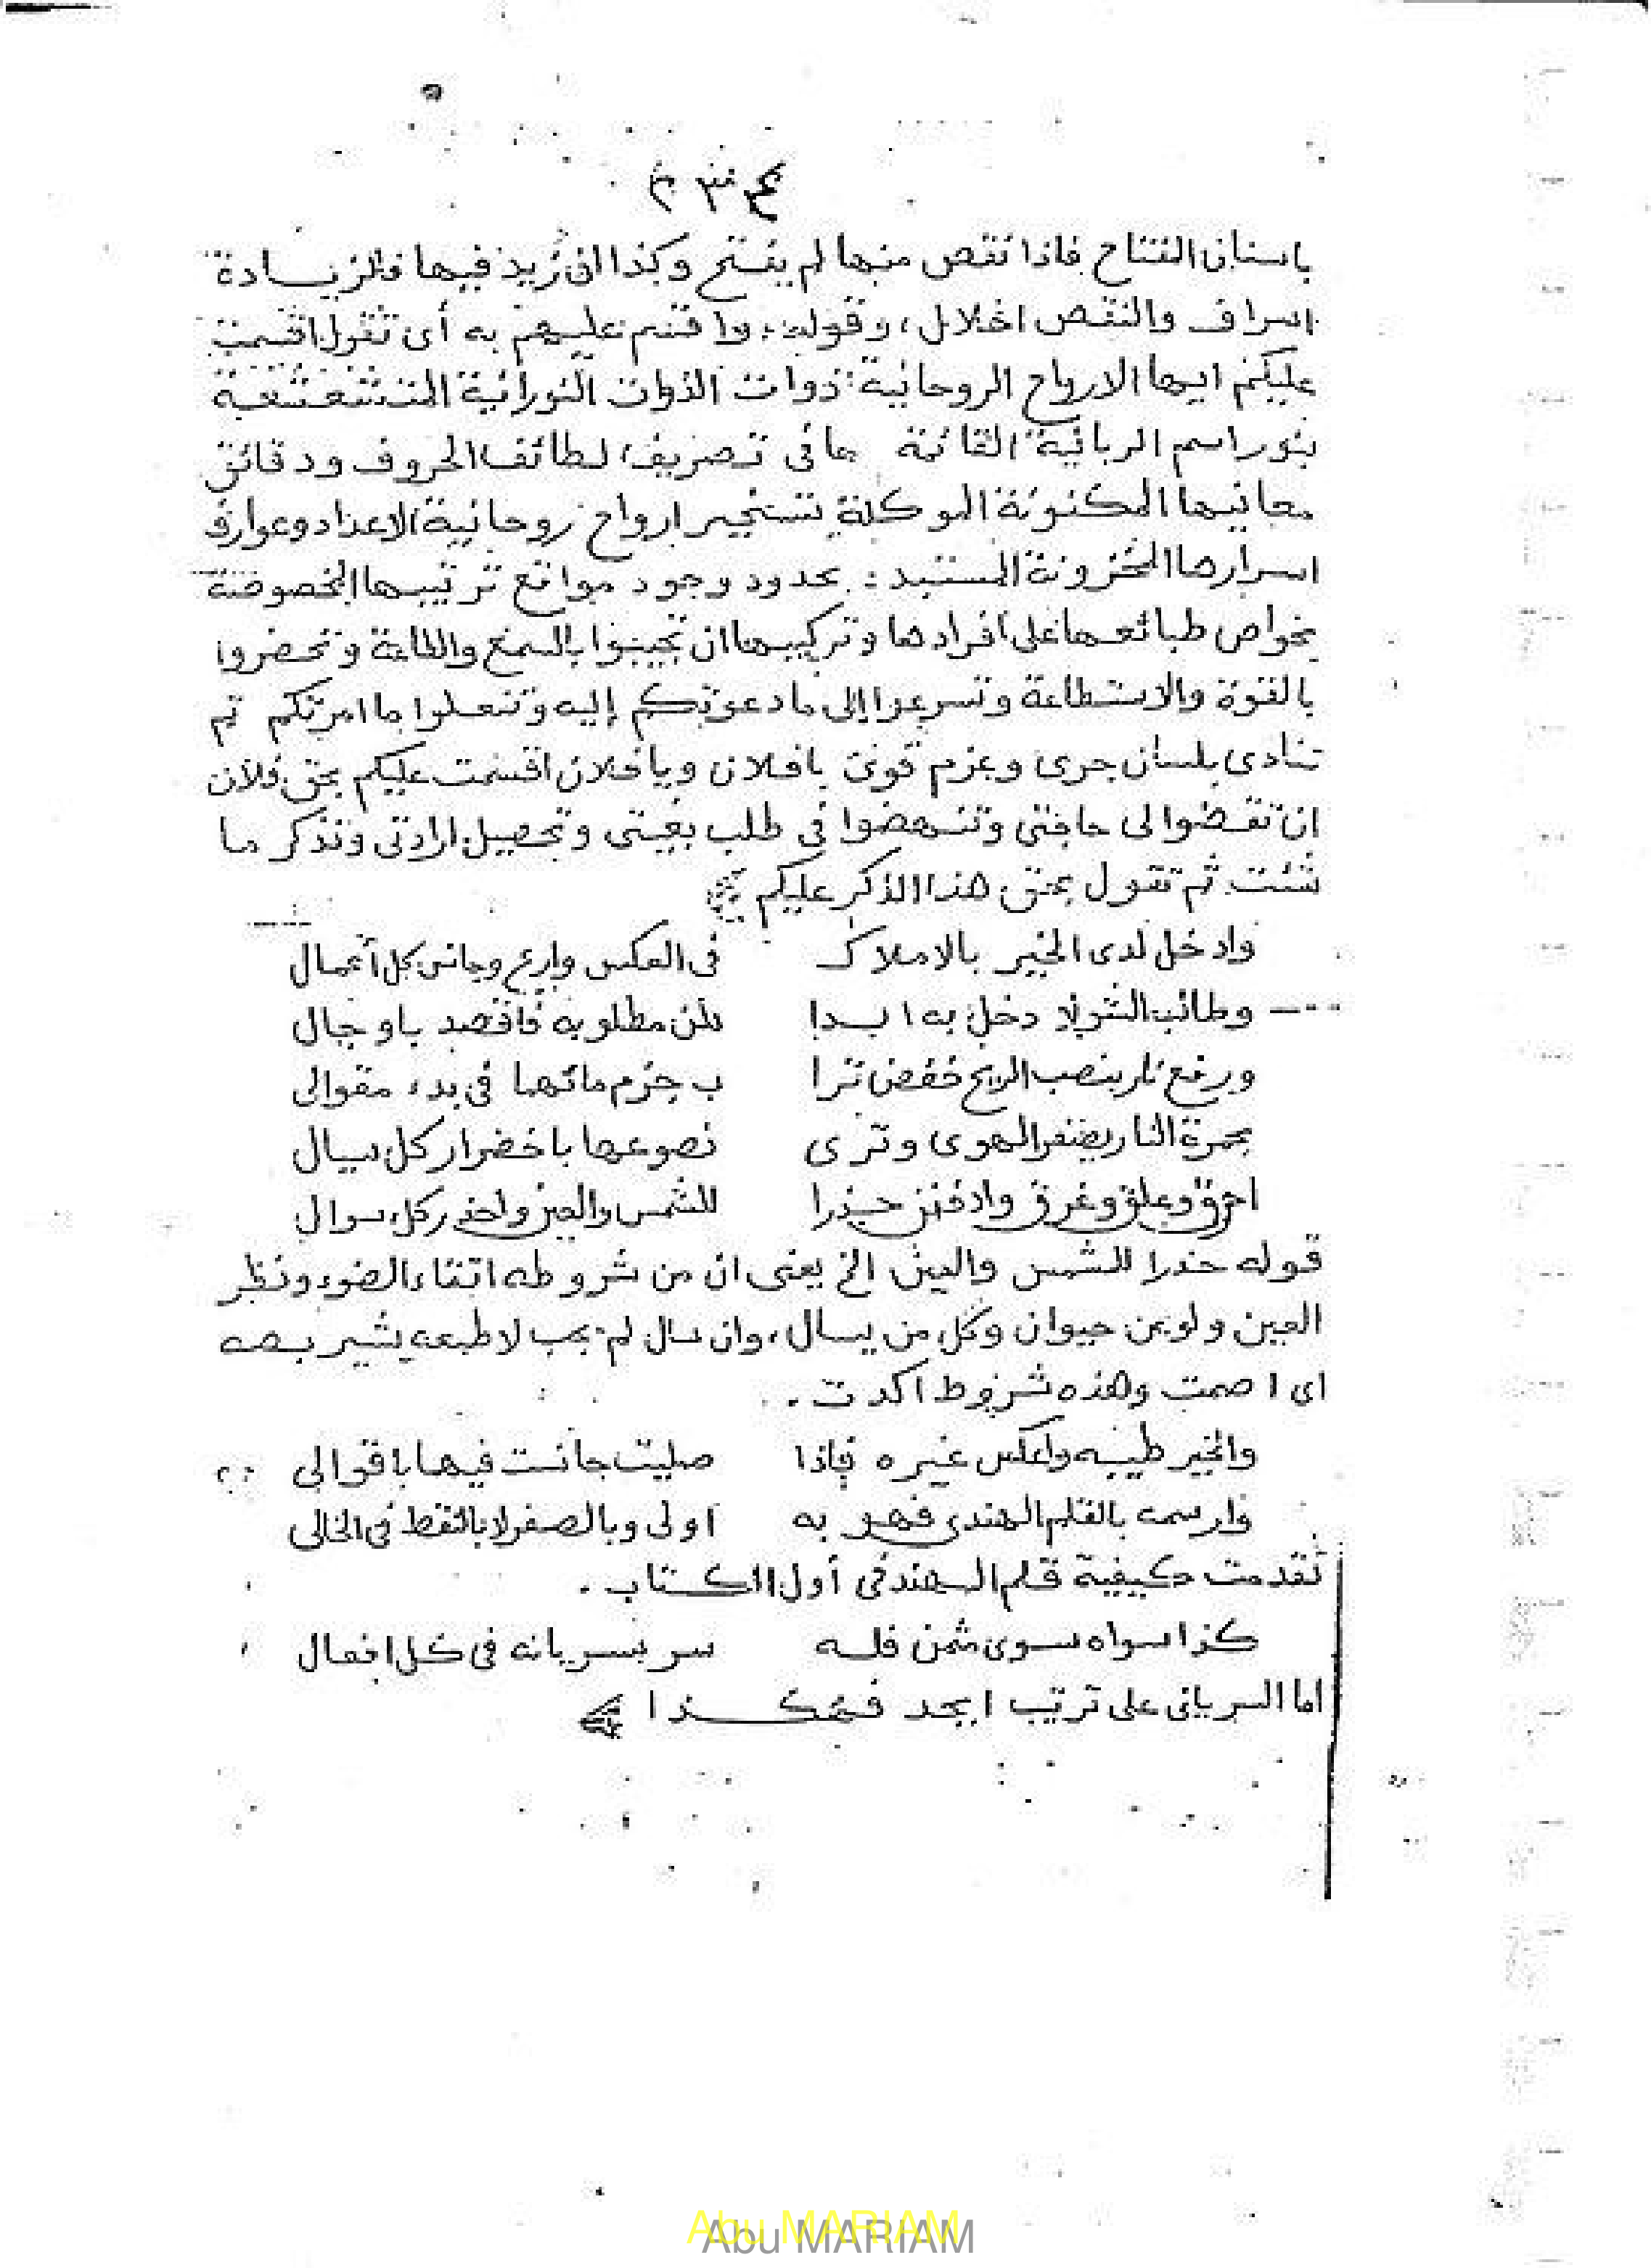 باسنان المفتاح فاذا نقص منها لم يفتح وكذا ان زيد فيها فالزيادة
اسراف والنقص اخلال، وقوله: واقسم عليهم به أى تقول اقسمت
عليكم ايها الارواح الروحانية ذوات الذوات النورانية المتشعشعة
بنور اسم الربانية القائمة فى تصريف لطائف الحروف ودقائق
معانيها المكنونة الموكلة بتسخير ارواح روحانية الاعداد وعوارف
اسرارها المخزونة بحدود وجود مواقع ترتيبها المخصوصة
بخواص طبائعها على افرادها وتركيبها ان تجيبوا بالسمع والطاعة وتحضروا
بالقوة والاستطاعة وتسرعوا إلى ما دعوتكم إليه وتفعلوا ما امرتكم ثم
تنادى بلسان جرى وعزم قوى يا فلان ويا فلان اقسمت عليكم بحق فلان
ان تقضوا لى حاجتى وتنهضوا فى طلب بغيتى وتحصيل ارادتى وتذكر ما
شئت ثم تقول بحق هذا الذكر عليكم
وادخل لدى الخير بالاملاك فى العكس وجانس كل أعمال
وطالب الشر لا دخل به ابدا
ورفع نار بنصب الريح خفض ترا ب جزم مائهما فى بدء مقوالى
بحمرة النار يصفر الهوى وترى باخضرار كل سيال
احرق وعلق وغرق وادفنن حذرا للشمس والعين واحذر كل سوال
قوله حذرا للشمس والعين الخ يعنى ان من شروطه اتقاء الضوء ونظر
العين ولو من حيوان وكل من يسال، وان سال لم يجب يشير بصه
اى اصمت وهذه شروط اكدت .
والخير طيبه واعكس غيره فاذا صليت جانست فيها باقوالى
وارسمه بالقلم الهندى فهو به اولى وبالصفر لا بالنقط فى الخالى
تقدمت كيفية قلم الهند فى أول الكتاب .
كذا سواه سوى فله سر بسريانه فى كل افعال
اما السريانى على ترتيب ابجد فهكذا
Abu MARIAM